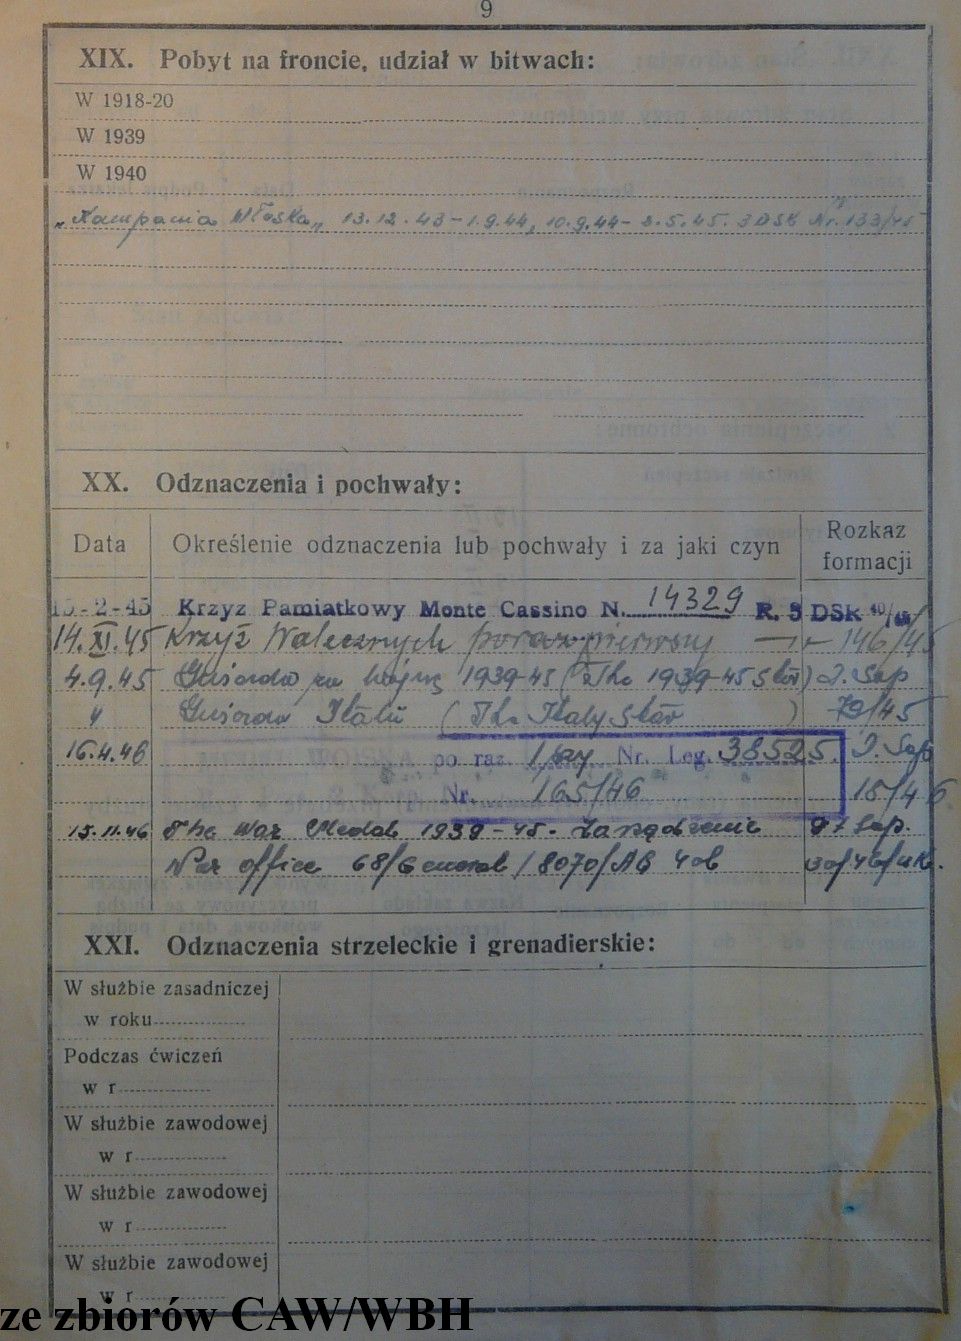 9
XIX. Pobyt na froncie, udział w bitwach:
W 1918-20
W 1939
W 1940
"Kampania Włoska" 13.12.43-1.9.44, 10.9.44- 2.5.45. 3DSK Nr. 133/45
XX. Odznaczenia i pochwały:
Data
Określenie odznaczenia lub pochwały i za jaki czyn
Rozkaz formacji
15-2-45 Krzyż Pamiatkowy Monte Cassino N. 14329 R. 3 DSK 40/45
14.XI.45 Krzyż Walecznych po raz pierwszy 146/45
4.9.45 Gwiazda za wojnę 1939-45 (The 1939-45 Star)
" Gwiazda Italii (The Italy Star) 79/45
16.4.46 po raz 1-szy Nr. Leg. 38525.
Nr. 165/46 18/46
15.11.46 The War Medal 1939-45. Zarządzenie
War office 68/General/8070/AG 4b
XXI. Odznaczenia strzeleckie i grenadierskie:
W służbie zasadniczej
w roku
Podczas ćwiczeń
w r
W służbie zawodowej
w r
W służbie zawodowej
w r
W służbie zawodowej
w r
ze zbiorów CAW/WBH